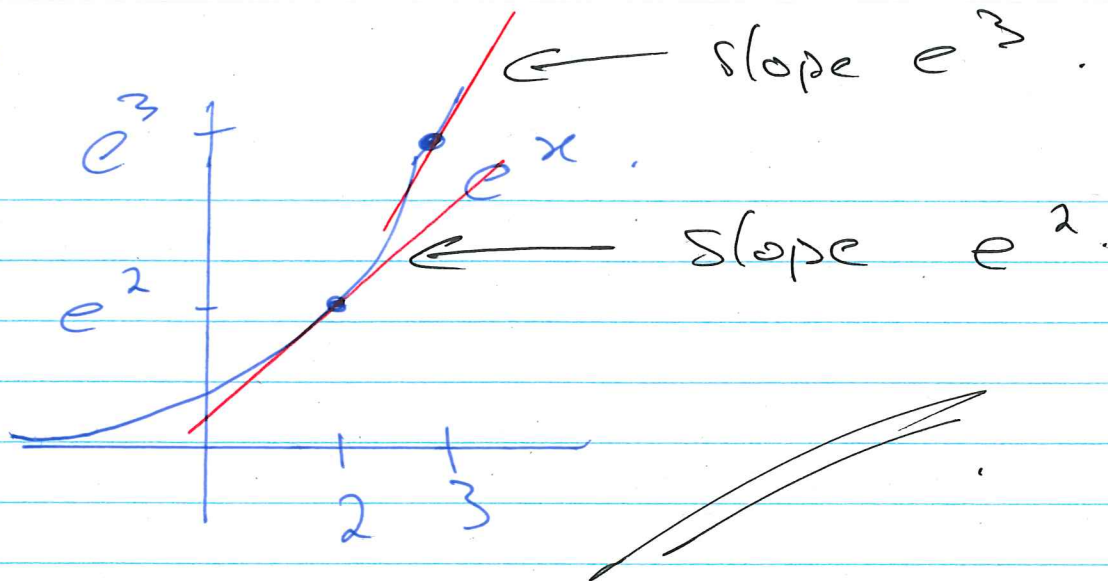 slope e³.
e³
eˣ.
slope e².
e²
2 3